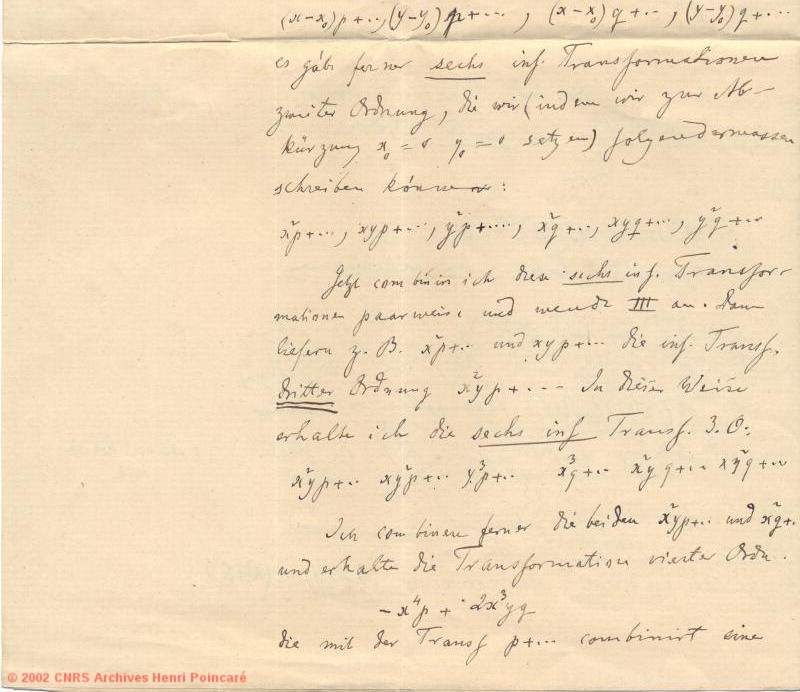 (x-x₀)p+.., (y-y₀)p+..., (x-x₀)q+.., (y-y₀)q+...
es gäbe ferner sechs inf. Transformationen
zweiter Ordnung, die wir (indem wir zur Ab-
kürzung x₀=0 y₀=0 setzen) folgendermassen
schreiben können:
x²p+..., xyp+..., y²p+...., x²q+..., xyq+..., y²q+..
Jetzt combinire ich diese sechs inf. Transfor-
mationen paarweise und wende III an. Dann
liefern z. B. x²p+.. und xyp+... die inf. Transf.
dritter Ordnung x²yp+.... In dieser Weise
erhalte ich die sechs inf Transf. 3. O.:
x²yp+.. xy²p+.. y³p+.. x³q+.. x²yq+.. xy²q+..
Ich combinire ferner die beiden x²yp+.. und x³q+.
und erhalte die Transformation vierter Ordn.
-x⁴p + 2x³yq
die mit der Transf p+... combinirt eine
© 2002 CNRS Archives Henri Poincaré